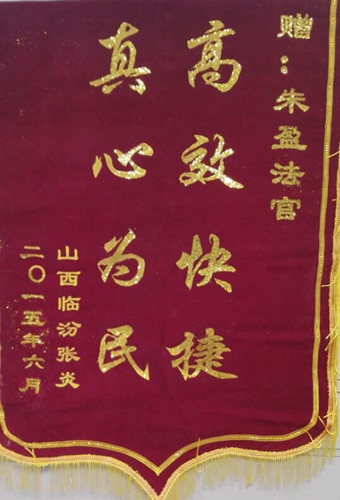 赠：朱盈法官
高效快捷
真心为民
山西临汾张炎
二〇一五年六月